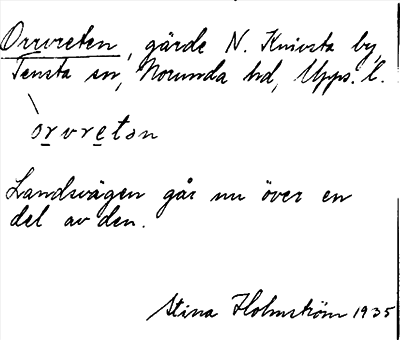 Orrvreten, gärde N. Knivsta by,
Tensta sn, Norunda hd, Upps. l.
òrvretən
Landsvägen går nu över en
del av den.
Stina Holmström 1935